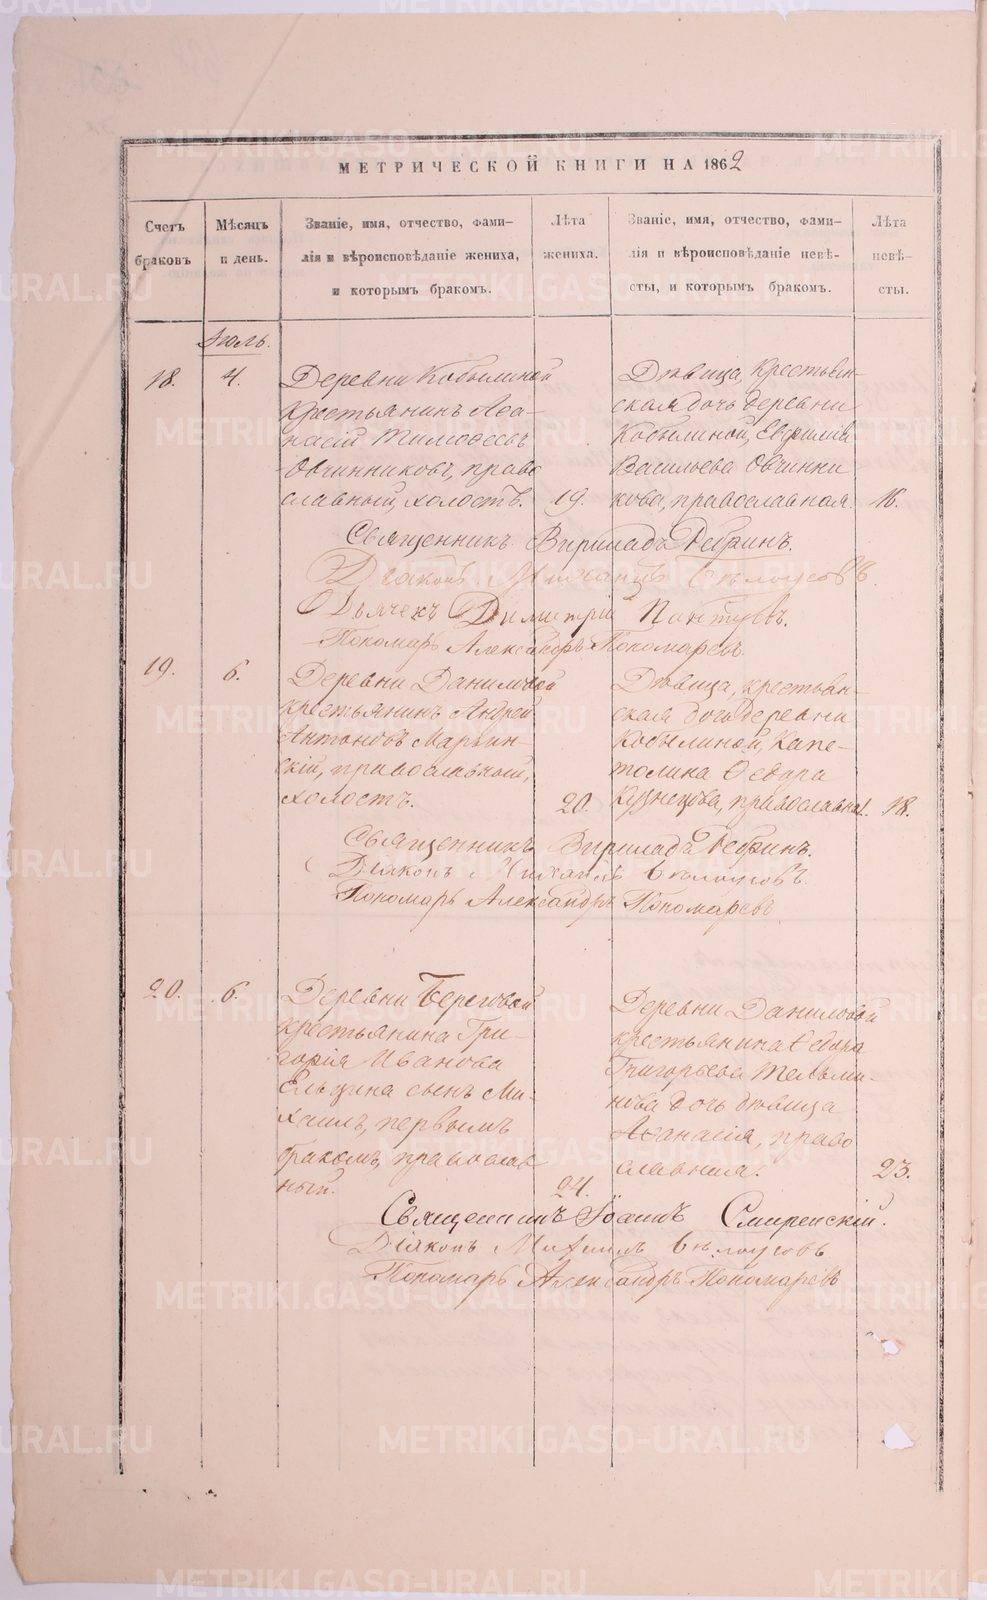 МЕТРИЧЕСКОЙ КНИГИ НА 1862
Счетъ браковъ
Мѣсяцъ и день.
Званіе, имя, отчество, фами-
лія и вѣроисповѣданіе жениха,
и которымъ бракомъ.
Лѣта жениха.
Званіе, имя, отчество, фами-
лія и вѣроисповѣданіе невѣ-
сты, и которымъ бракомъ.
Лѣта невѣ-
сты.
Іюль.
18.
4.
Деревни Кобылиной
крестьянинъ Аѳа-
насій Тимоѳеевъ
Овчинниковъ, право
славный, холостъ.
19.
Дѣвица, крестьян-
ская дочь деревни
Кобылиной, Евфимія
Васильева Овчинни
кова, православная.
16.
Священникъ
Діаконъ Михаилъ Бѣлоусовъ.
Дьячекъ Димитрій
Пономарь Александръ Пономаревъ.
19.
6.
Деревни Даниловой
крестьянинъ Андрей
Антоновъ Марьин-
скій, православный,
холостъ.
20.
Дѣвица, крестьян-
ская дочь деревни
Кобылиной, Капе-
толина Ѳедора
Кузнецова, православная.
18.
Священникъ
Діаконъ Михаилъ Бѣлоусовъ.
Пономарь Александръ Пономаревъ
20.
6.
Деревни Береговой
крестьянина Гри-
горія Иванова
Ельцина сынъ Ми-
хаилъ, первымъ
бракомъ, православ
ный.
24.
Деревни Даниловой
крестьянина Ѳедора
Григорьева Тельми-
нова дочь дѣвица
Аѳанасія, право
славная.
23.
Священникъ Іоаннъ Смиренскій.
Діаконъ Михаилъ Бѣлоусовъ
Пономарь Александръ Пономаревъ
METRIKI.GASO-URAL.RU